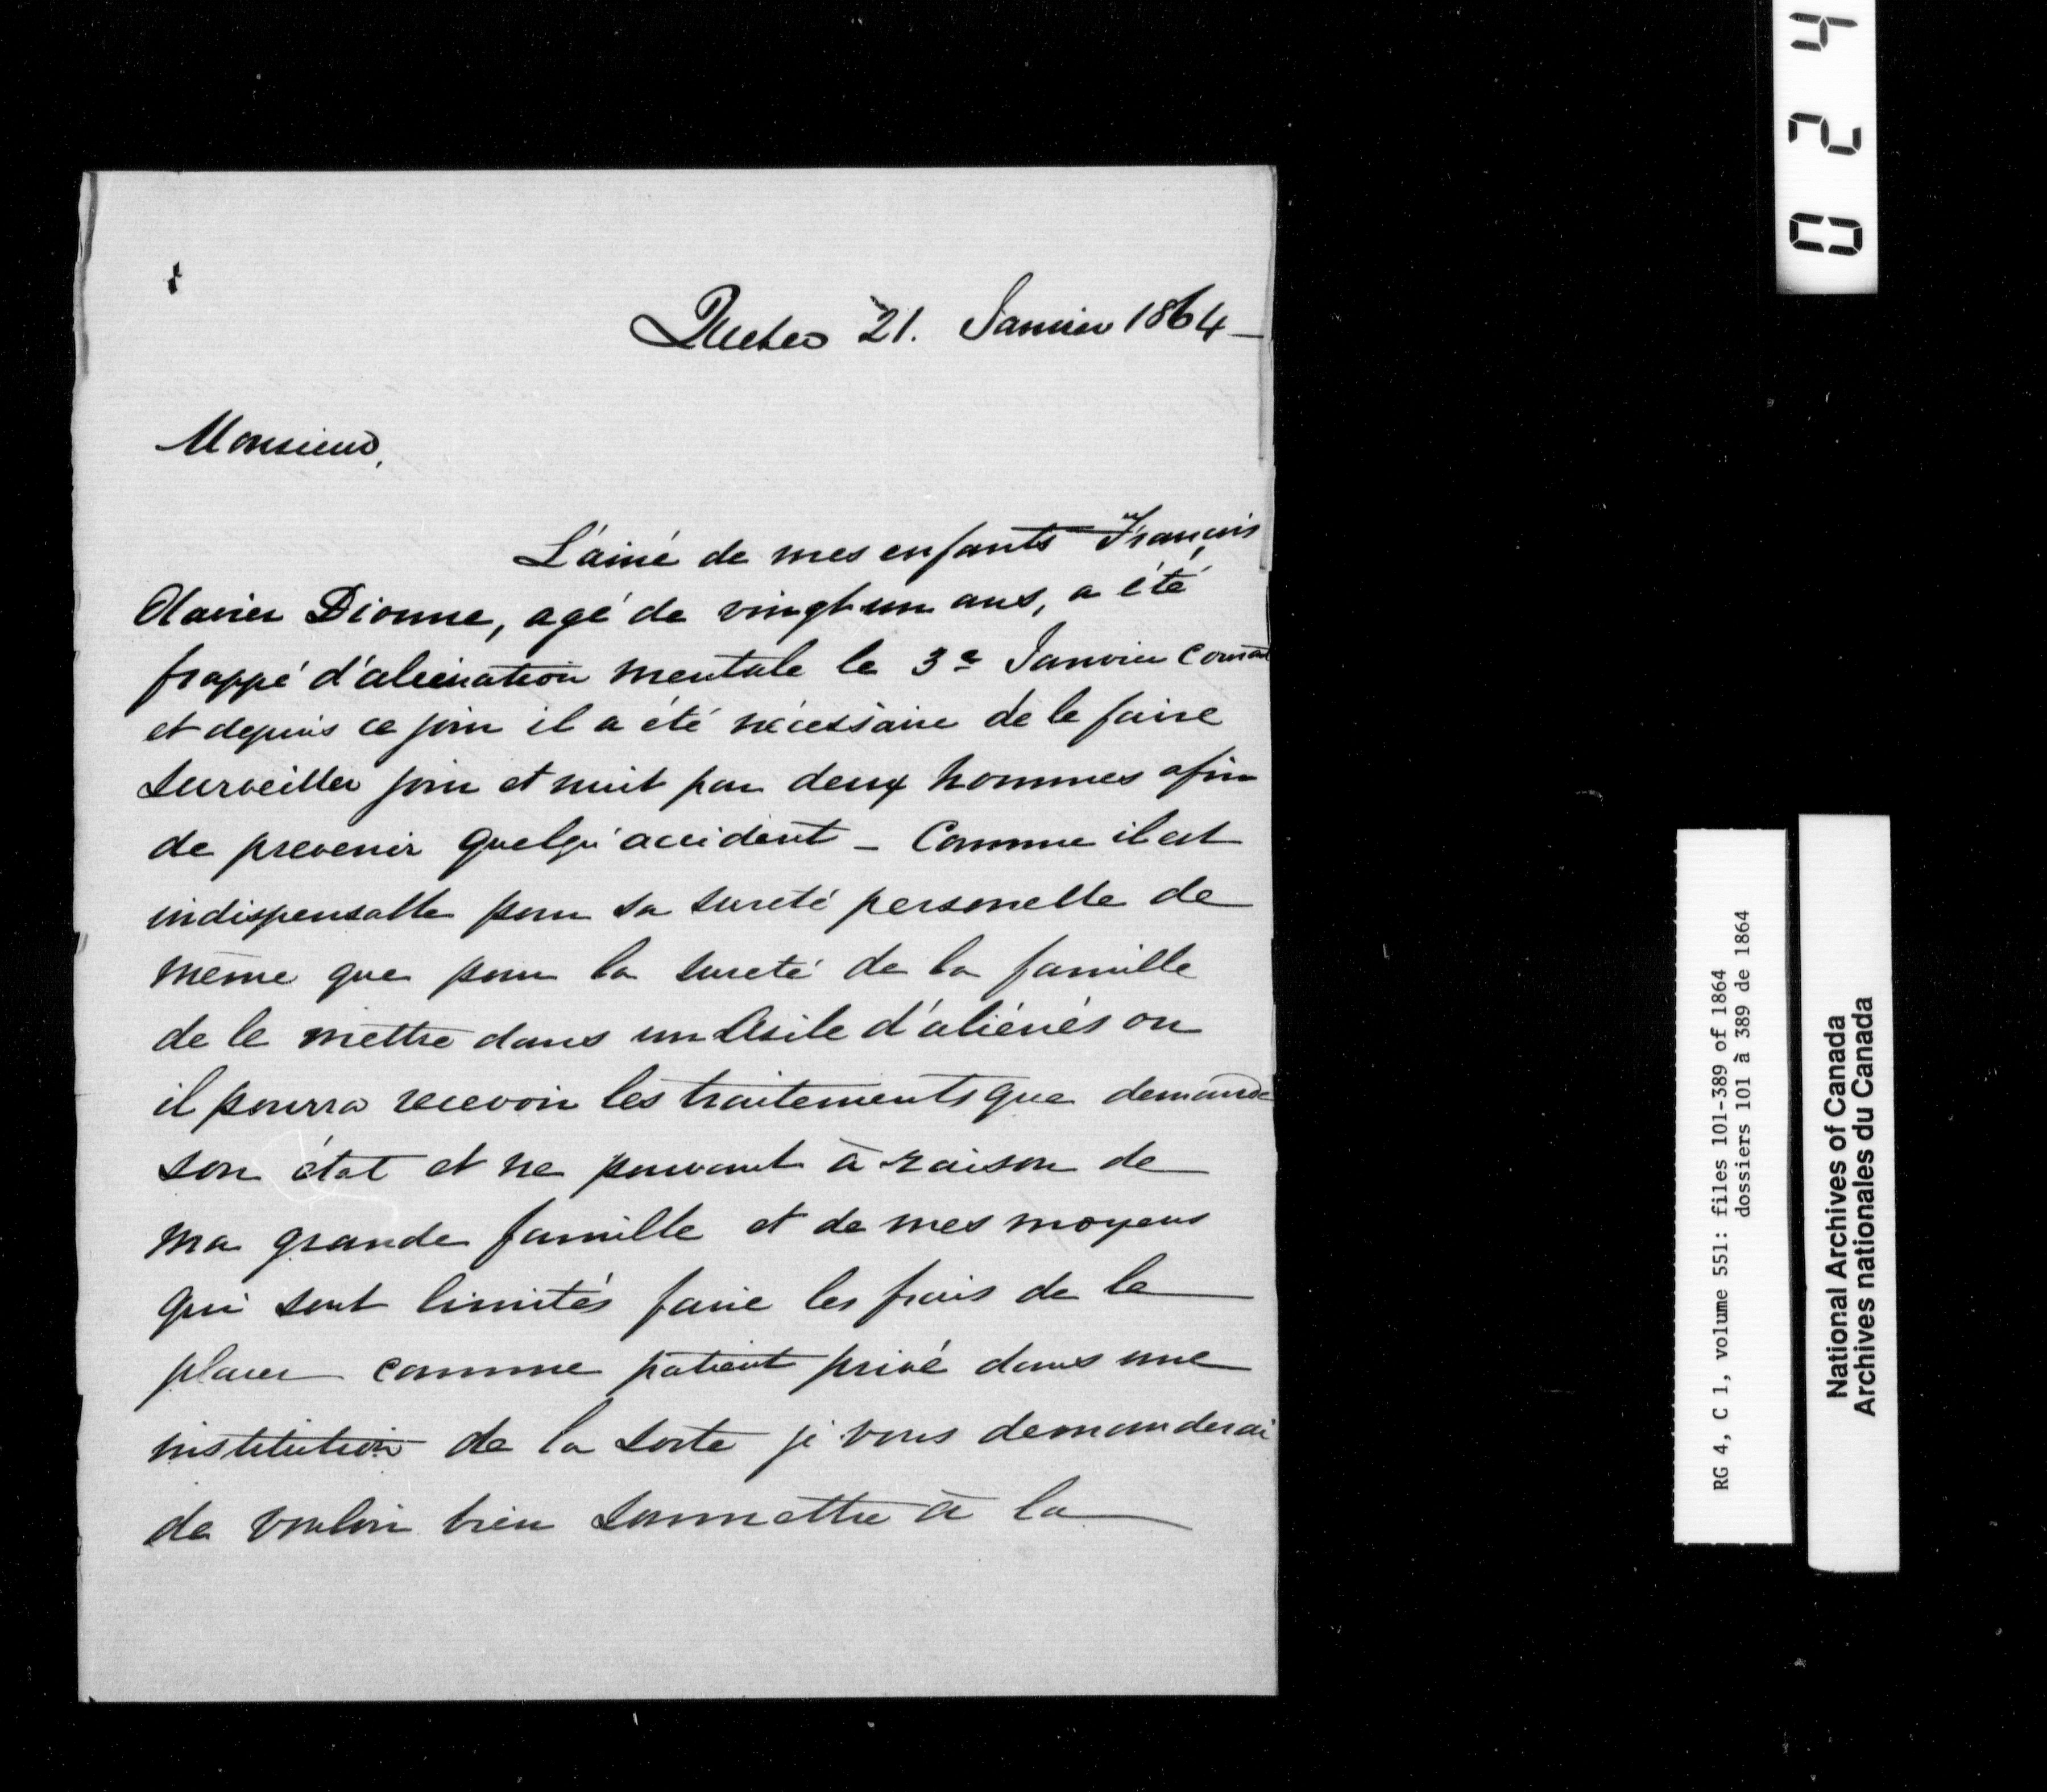 Quebec 21. Janvier 1864 —
Monsieur,
L'ainé de mes enfants François
Xavier Dionne, agé de vingt un ans, a été
frappé d'alienation mentale le 3e Janvier courant
et depuis ce jour il a été nécessaire de le faire
surveiller jour et nuit par deux hommes afin
de prevenir quelqu'accident – Comme il est
indispensable pour sa sureté personelle de
même que pour la sureté de la famille
de le mettre dans un Asile d'aliénés ou
il pourra recevoir les traitements que demande
son état et ne pouvant à raison de
ma grande famille et de mes moyens
qui sont limités faire les frais de le
placer comme patient privé dans une
institution de la sorte je vous demanderai
de vouloir bien soumettre à la
0 2 4
RG 4, C 1, volume 551: files 101-389 of 1864
dossiers 101 à 389 de 1864
National Archives of Canada
Archives nationales du Canada